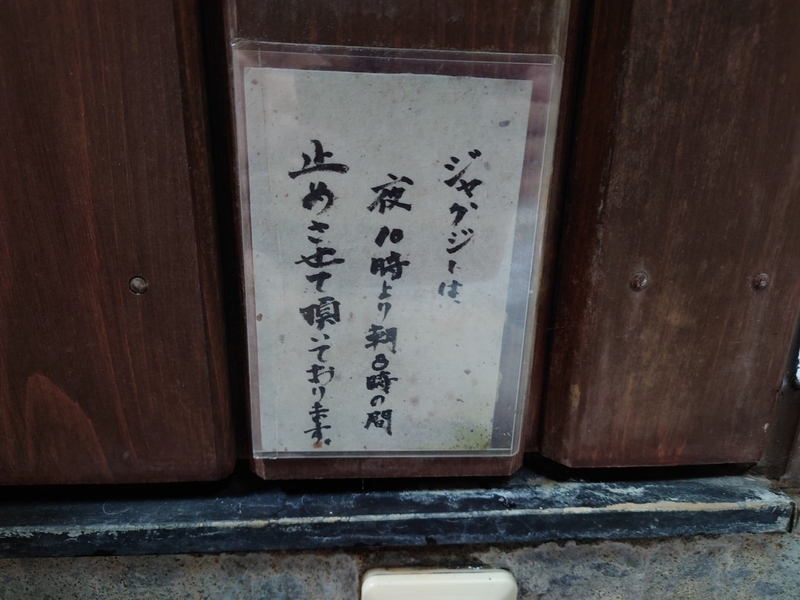 ジャグジーは、
夜10時より朝8時の間
止めさせて頂いております。